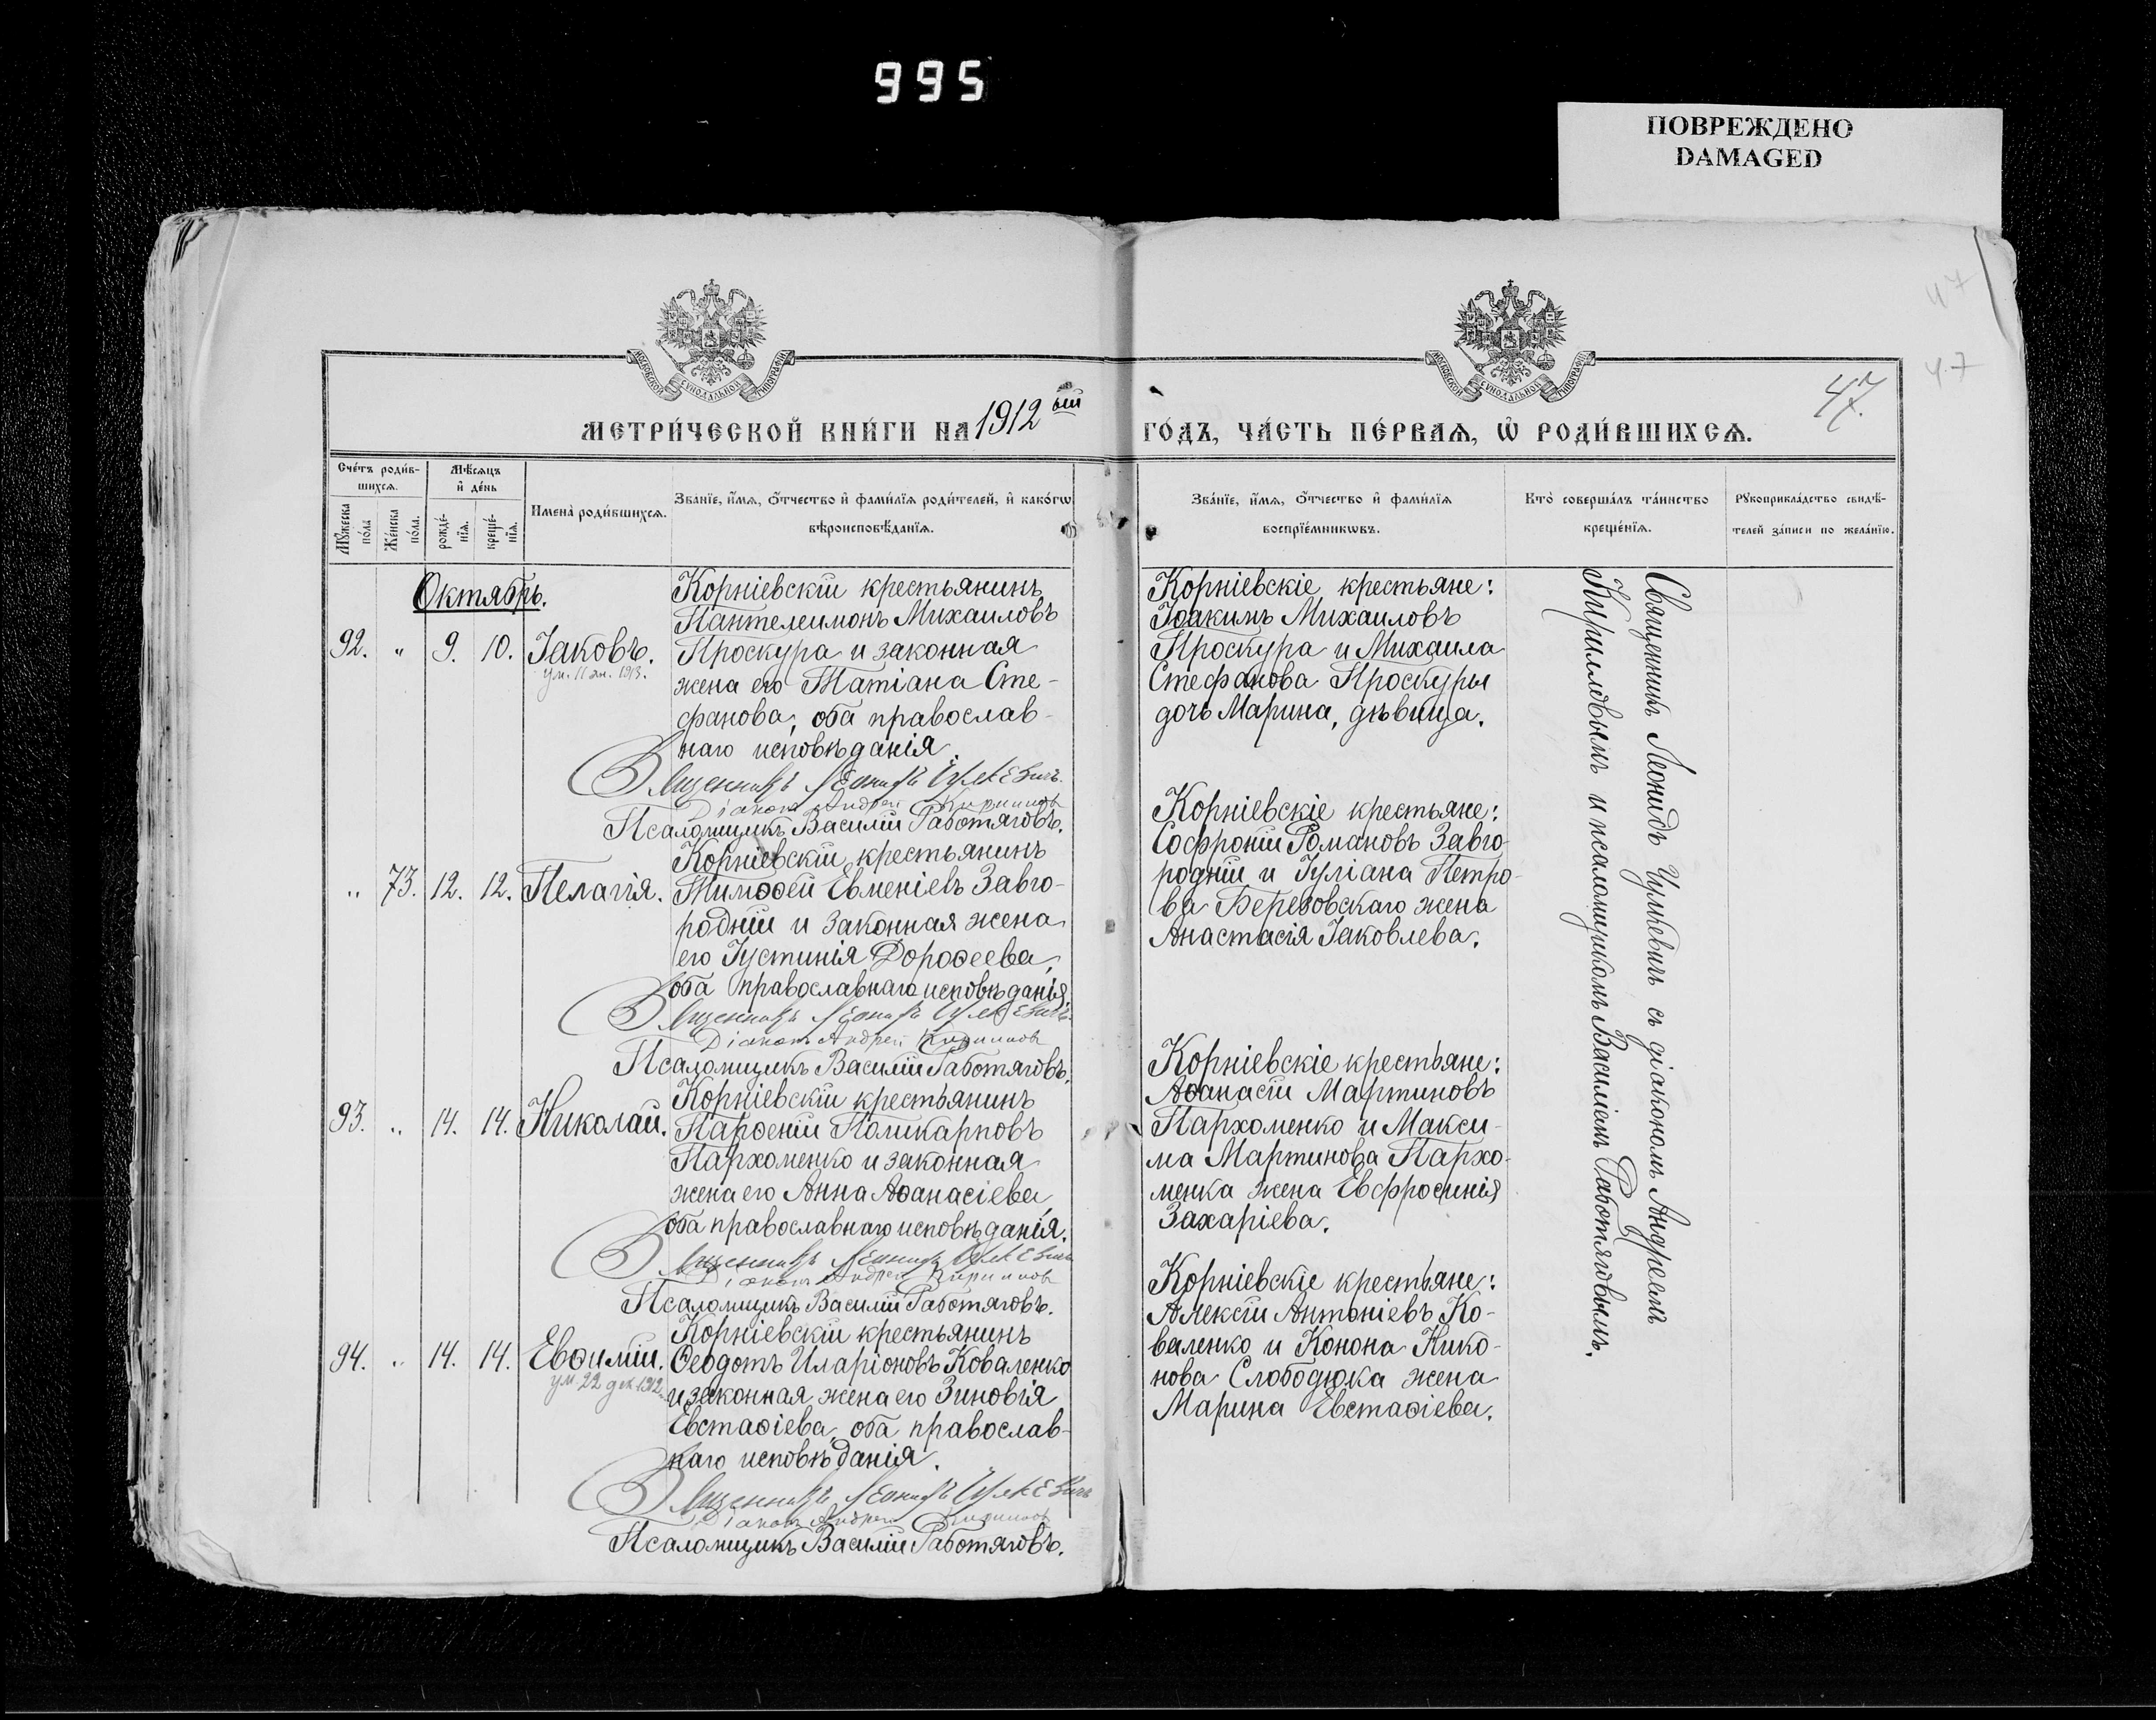 995
ПОВРЕЖДЕНО
DAMAGED
47
47
47
МЕТРИ́ЧЕСКОЙ КНИ́ГИ НА 1912 ый
ГО́ДЪ, ЧА́СТЬ ПЕ́РВАѦ, Ѡ РОДИ́ВШИХСѦ.
Сче́тъ роди́в-
шихсѧ.
Мꙋ́жеска
по́ла
Же́нска
по́ла.
Мѣ́сѧцъ
и́ де́нь
рожде́-
нїѧ.
креще́-
нїѧ.
Имена̀ роди́вшихсѧ.
Зва́нїе, и́мѧ, о́тчество и́ фами́лїѧ роди́телей, и́ како́гѡ
вѣроисповѣ́данїѧ.
Зва́нїе, и́мѧ, о́тчество и́ фами́лїѧ
воспрїе́мникѡвъ.
Кто̀ соверша́лъ та́инство
креще́нїѧ.
Рꙋкоприкла́дство свидѣ́-
телей за́писи по жела́нїю.
Октябрь.
92. „ 9. 10. Іаковъ.
ум. 11 ян. 1913.
Корніевскій крестьянинъ
Пантелеимонъ Михаиловъ
Проскура и законная
жена его Татіана Сте-
фанова, оба православ-
наго исповѣданія.
Священникъ Леонидъ Чулкевичъ
Діаконъ Андрей Кириллов
Псаломщикъ Василій Работяговъ.
Корніевскіе крестьяне:
Іоакимъ Михаиловъ
Проскура и Михаила
Стефанова Проскуры
дочь Марина, дѣвица.
„ 73. 12. 12. Пелагія.
Корніевскій крестьянинъ
Тимоѳей Евменіевъ Завго-
родній и законная жена
его Іустинія Дороѳеева,
оба православнаго исповѣданія.
Священникъ Леонидъ Чулкевичъ
Діаконъ Андрей Кириллов
Псаломщикъ Василій Работяговъ.
Корніевскіе крестьяне:
Софроній Романовъ Завго-
родній и Іуліана Петро-
ва Березовскаго жена
Анастасія Іаковлева.
93. „ 14. 14. Николай.
Корніевскій крестьянинъ
Парѳеній Поликарповъ
Пархоменко и законная
жена его Анна Аѳанасіева,
оба православнаго исповѣданія.
Священникъ Леонидъ Чулкевичъ
Діаконъ Андрей Кириллов
Псаломщикъ Василій Работяговъ.
Корніевскіе крестьяне:
Аѳанасій Мартиновъ
Пархоменко и Макси-
ма Мартинова Пархо-
менка жена Евфросинія
Захаріева.
94. „ 14. 14. Евѳимій.
ум. 22 дек. 1912
Корніевскій крестьянинъ
Ѳеодотъ Иларіоновъ Коваленко
и законная жена его Зиновія
Евстаѳіева, оба православ-
наго исповѣданія.
Священникъ Леонидъ Чулкевичъ
Діаконъ Андрей Кириллов
Псаломщикъ Василій Работяговъ.
Корніевскіе крестьяне:
Алексій Антоніевъ Ко-
валенко и Конона Нико-
нова Слободюка жена
Марина Евстаѳіева.
Священникъ Леонидъ Чулкевичъ съ діакономъ Андреемъ
Кирилловымъ и псаломщикомъ Василіемъ Работяговымъ.